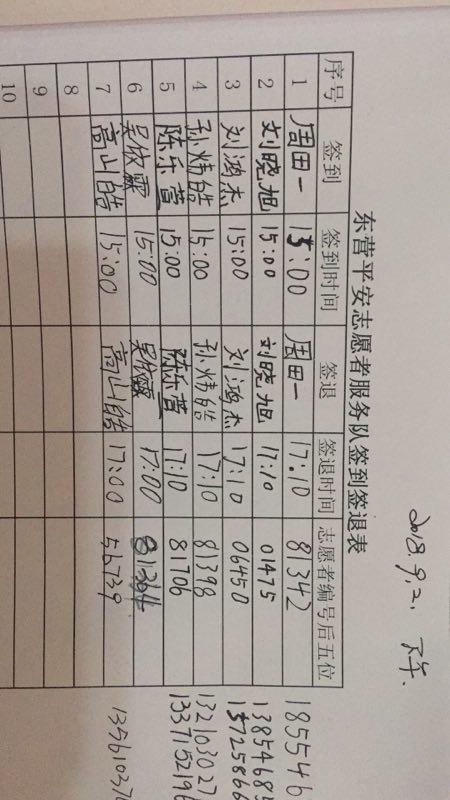 2018.9.2. 下午.
东营平安志愿者服务队签到签退表
序号 签到 签到时间 签退 签退时间 志愿者编号后五位
1 周田一 15:00 周田一 17:10 81342 185546
2 刘晓旭 15:00 刘晓旭 17:10 01475 1385468
3 刘鸿杰 15:00 刘鸿杰 17:10 06450 13725866
4 孙炜皓 15:00 孙炜皓 17:10 81398 13210302
5 陈乐萱 15:00 陈乐萱 17:10 81706 133715219
6 吴依霏 15:00 吴依霏 17:00
7 高山皓 15:00 高山皓 17:00 56739 13561037
8
9
10